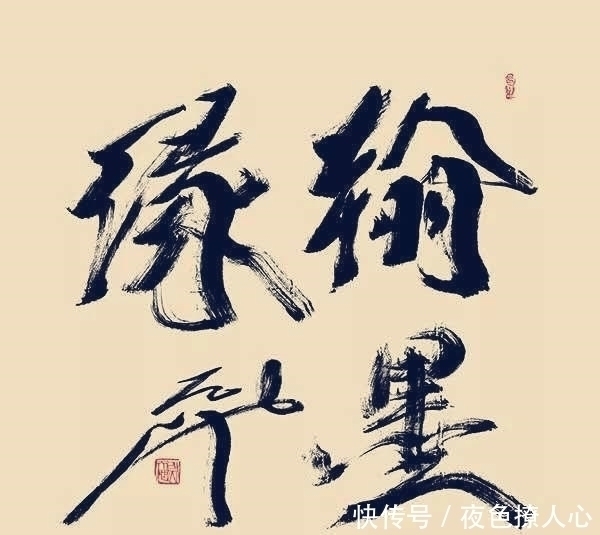 翰墨
缘
快传号 / 夜色撩人心